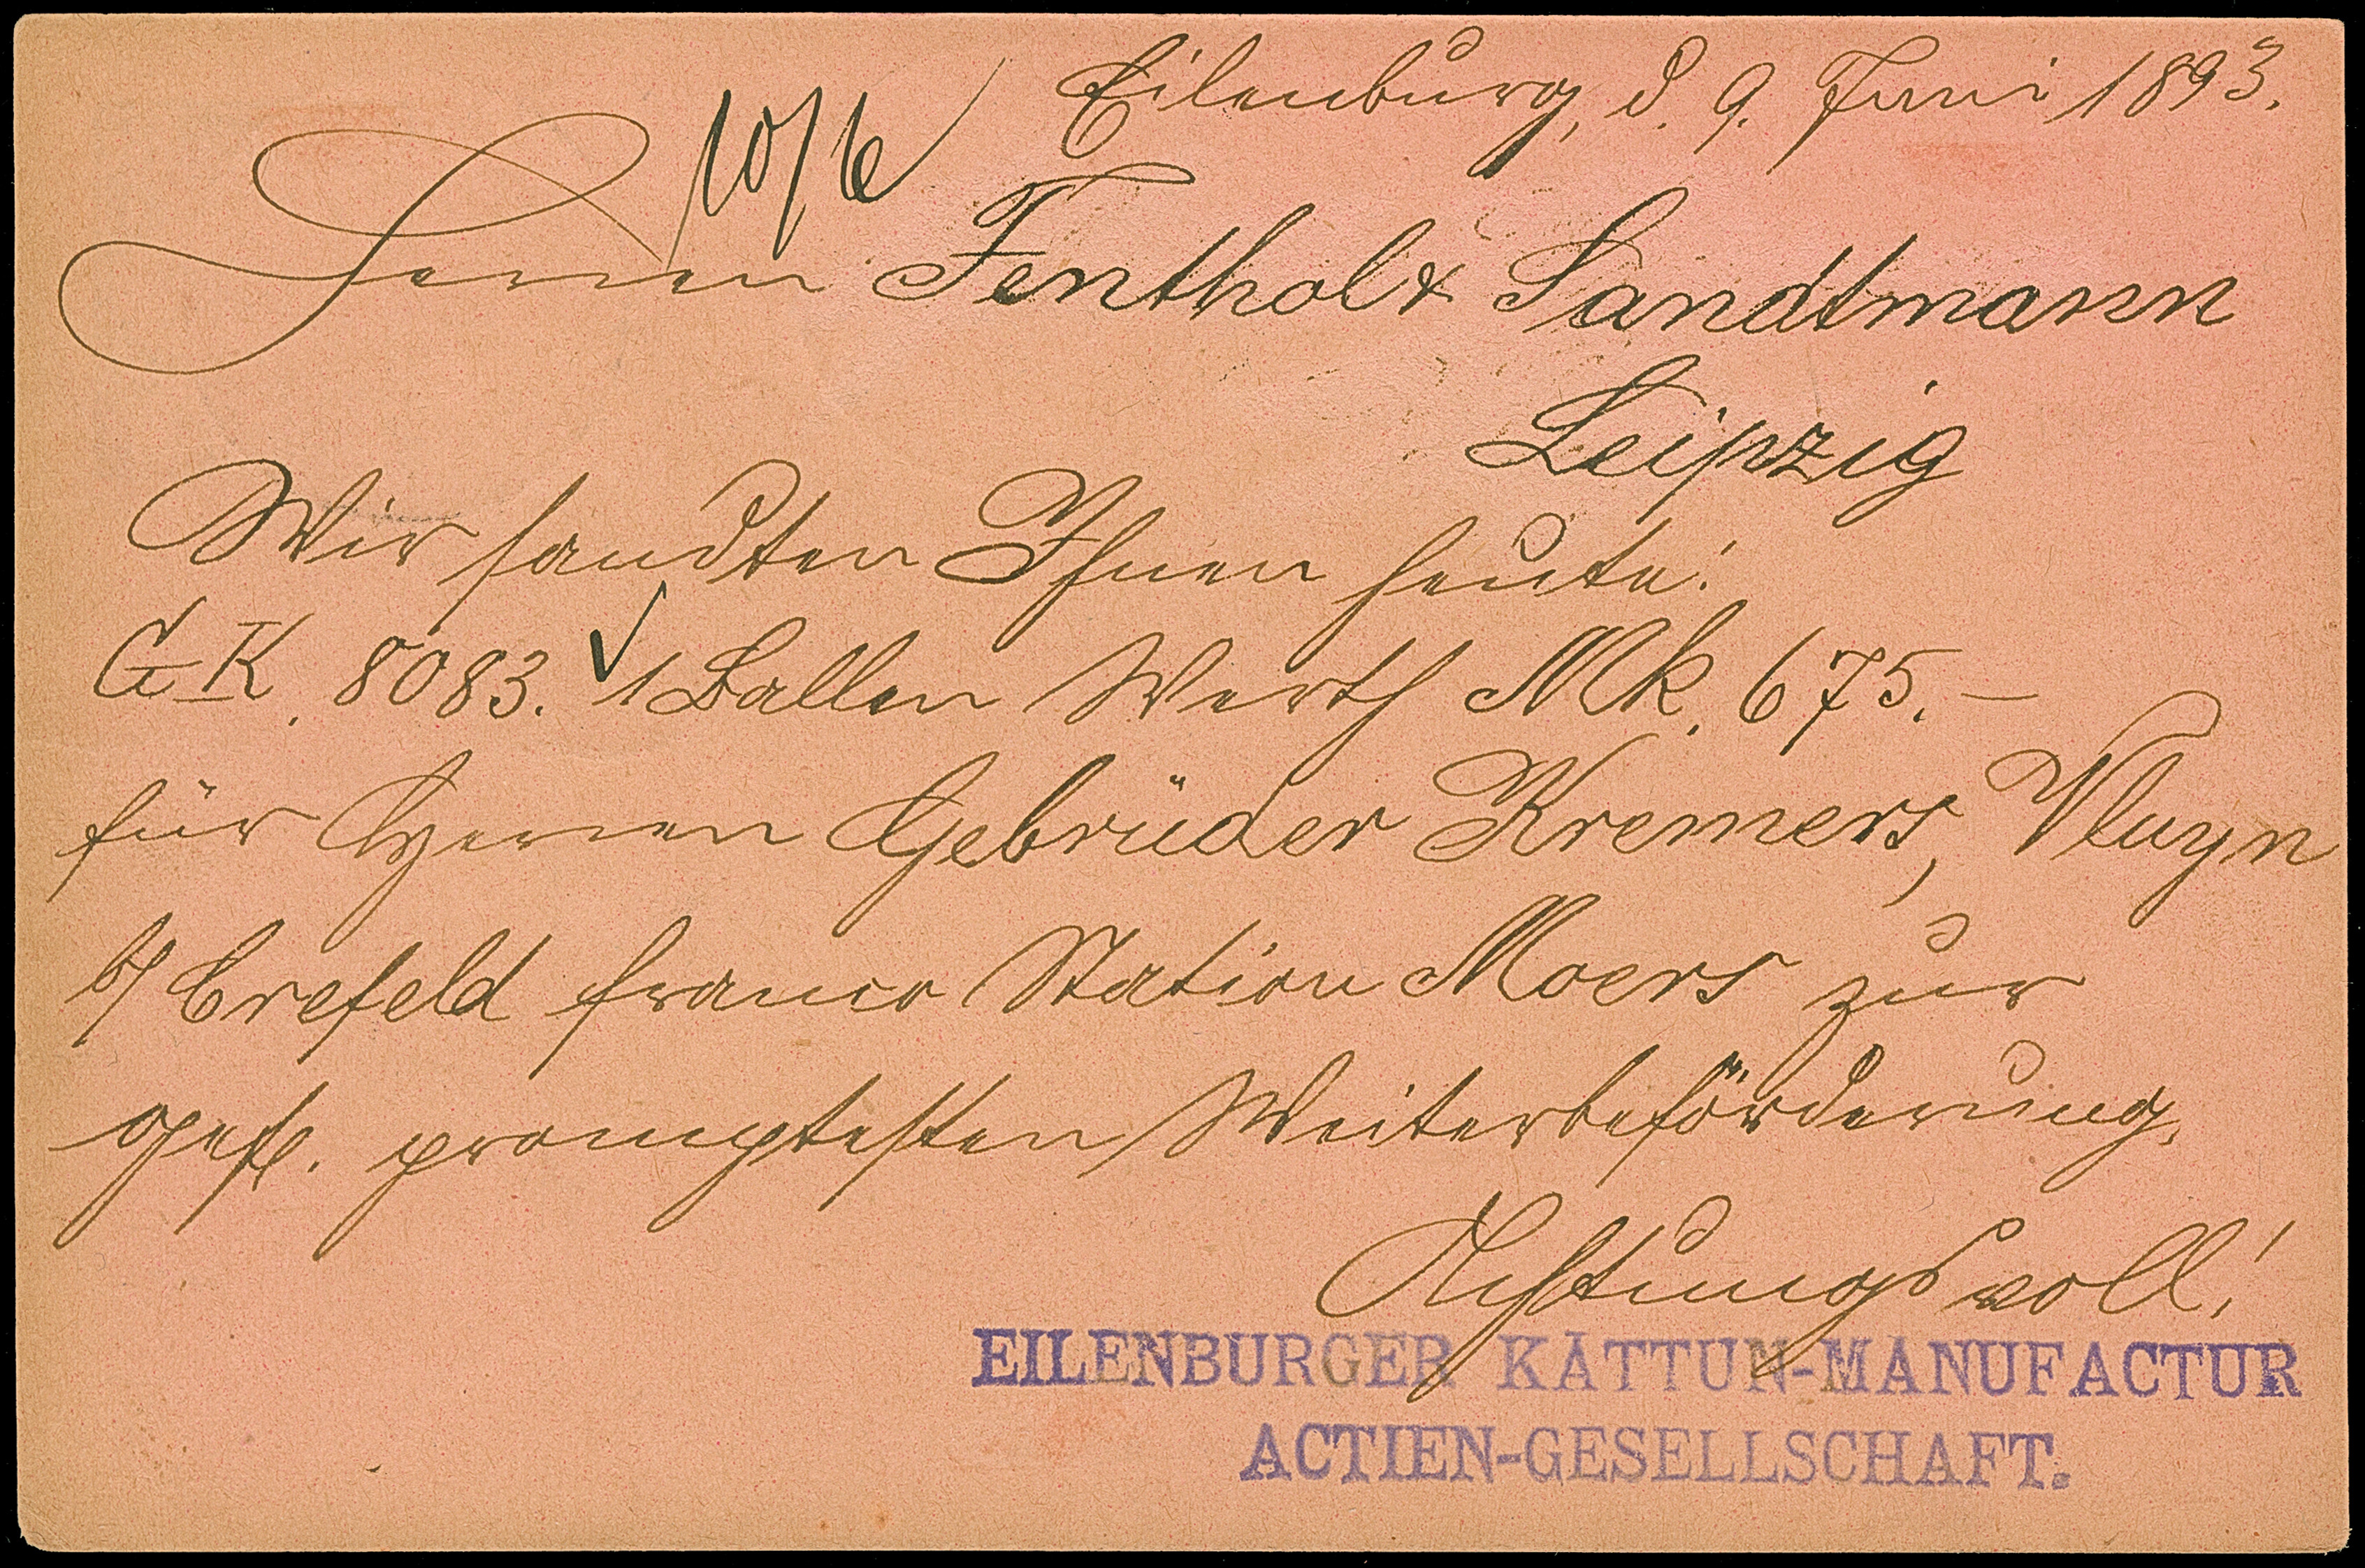 Eilenburg, d. 9. Juni 1893.
10/6
Herren Fenthol & Sandtmann
Leipzig
Wir sandten Ihnen heute:
GK. 8083. √ 1 Ballen Werth Mk. 675.–
für Herren Gebrüder Kremers, Vluyn
b/ Crefeld franco Station Moers zur
gefl. promptesten Weiterbeförderung.
Achtungsvoll!
EILENBURGER KATTUN-MANUFACTUR
ACTIEN-GESELLSCHAFT.